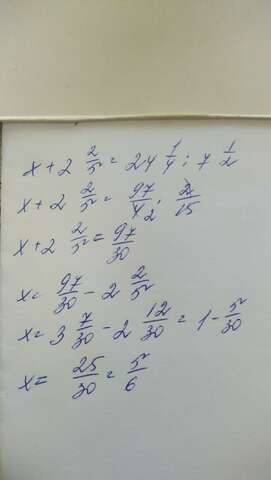 x + 2 2/5 = 24 1/4 : 7 1/2
x + 2 2/5 = 97/4 · 2/15
x + 2 2/5 = 97/30
x = 97/30 - 2 2/5
x = 3 7/30 - 2 12/30 = 1 - 5/30
x = 25/30 = 5/6